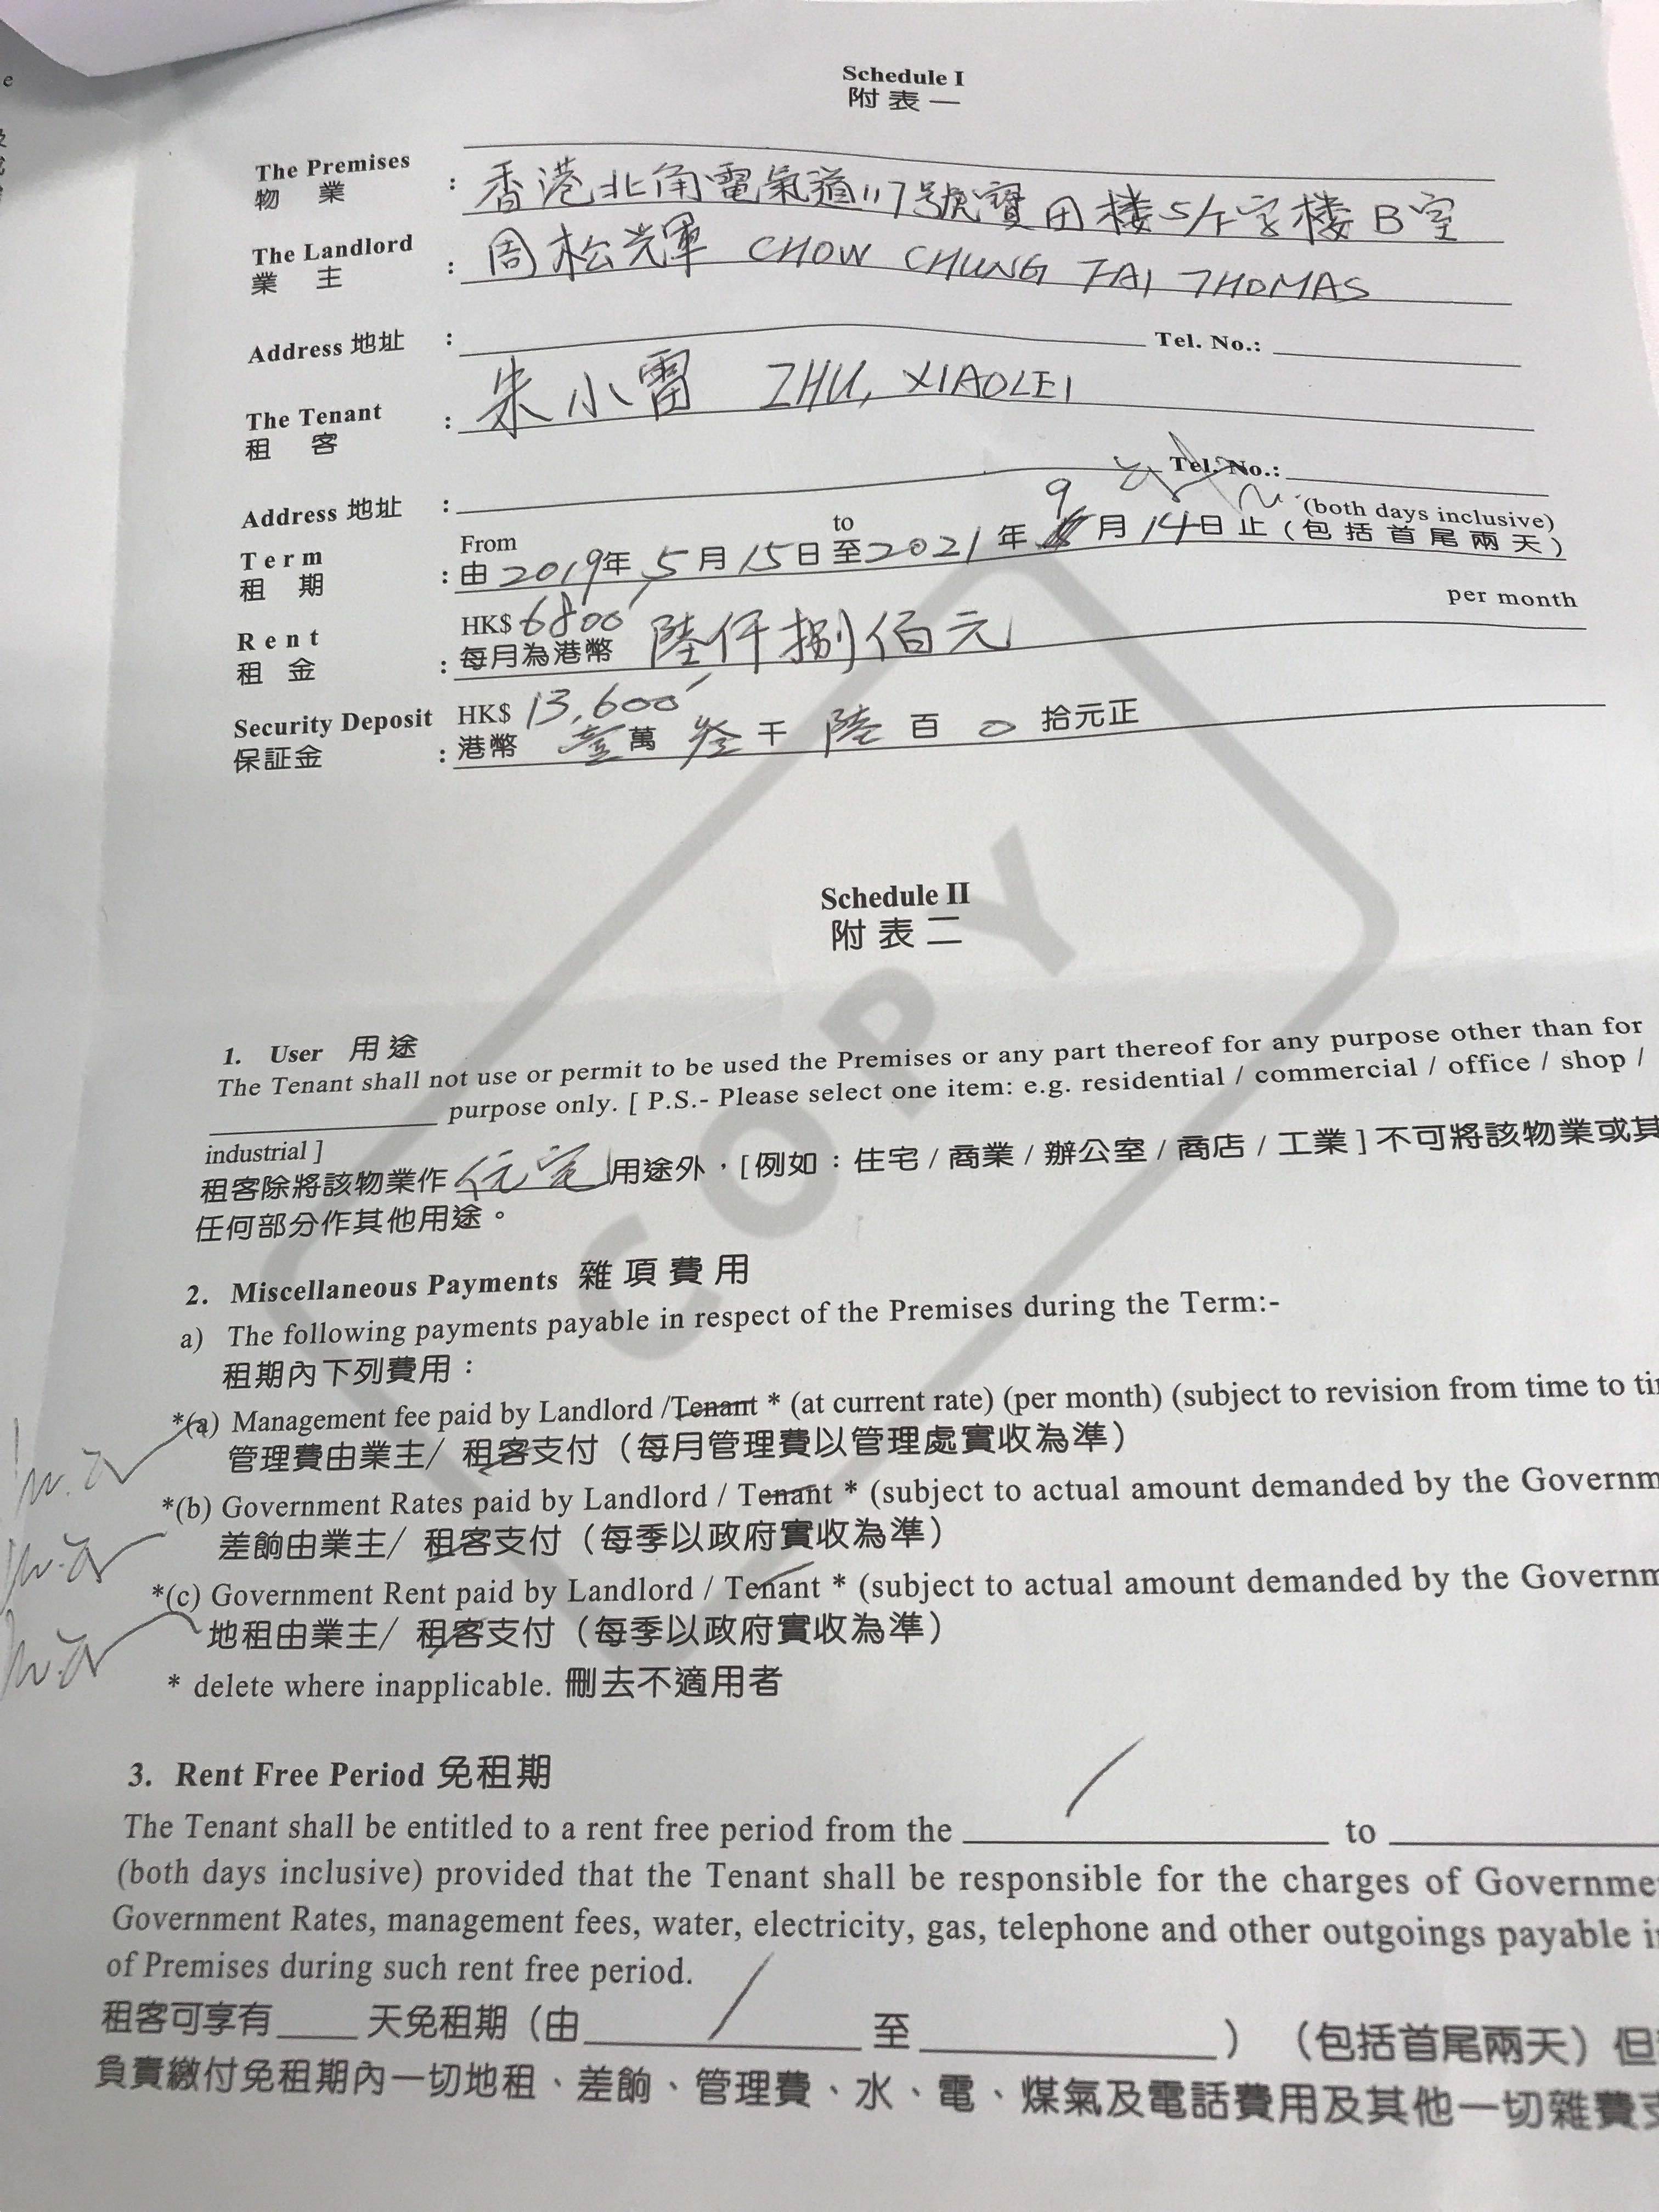 Schedule I
附表一
The Premises
物 業 : 香港北角電氣道117號寶田樓5/F字樓B室
The Landlord
業 主 : 周松輝 CHOW CHUNG FAI THOMAS
Address 地址 : Tel. No.:
The Tenant
租 客 : 朱小雷 ZHU, XIAOLEI
Address 地址 : Tel. No.:
Term From to 9 (both days inclusive)
租 期 : 由 2019年 5 月 15 日 至 2021 年 月 14 日 止 (包 括 首 尾 兩 天)
Rent HK$ 6800 per month
租 金 : 每月為港幣 陸仟捌佰元
Security Deposit HK$ 13,600
保証金 : 港幣 壹 萬 叁 千 陸 百 0 拾元正
COPY
Schedule II
附表二
1. User 用途
The Tenant shall not use or permit to be used the Premises or any part thereof for any purpose other than for
purpose only. [ P.S.- Please select one item: e.g. residential / commercial / office / shop /
industrial ]
租客除將該物業作 住宅 用途外，[例如：住宅 / 商業 / 辦公室 / 商店 / 工業 ] 不可將該物業或其
任何部分作其他用途。
2. Miscellaneous Payments 雜項費用
a) The following payments payable in respect of the Premises during the Term:-
租期內下列費用：
*(a) Management fee paid by Landlord /Tenant * (at current rate) (per month) (subject to revision from time to
管理費由業主/ 租客支付（每月管理費以管理處實收為準）
*(b) Government Rates paid by Landlord / Tenant * (subject to actual amount demanded by the Governm
差餉由業主/ 租客支付（每季以政府實收為準）
*(c) Government Rent paid by Landlord / Tenant * (subject to actual amount demanded by the Governm
地租由業主/ 租客支付（每季以政府實收為準）
* delete where inapplicable. 刪去不適用者
3. Rent Free Period 免租期
The Tenant shall be entitled to a rent free period from the / to
(both days inclusive) provided that the Tenant shall be responsible for the charges of Governme
Government Rates, management fees, water, electricity, gas, telephone and other outgoings payable i
of Premises during such rent free period.
租客可享有 天免租期（由 / 至 ）（包括首尾兩天）但
負責繳付免租期內一切地租、差餉、管理費、水、電、煤氣及電話費用及其他一切雜費支